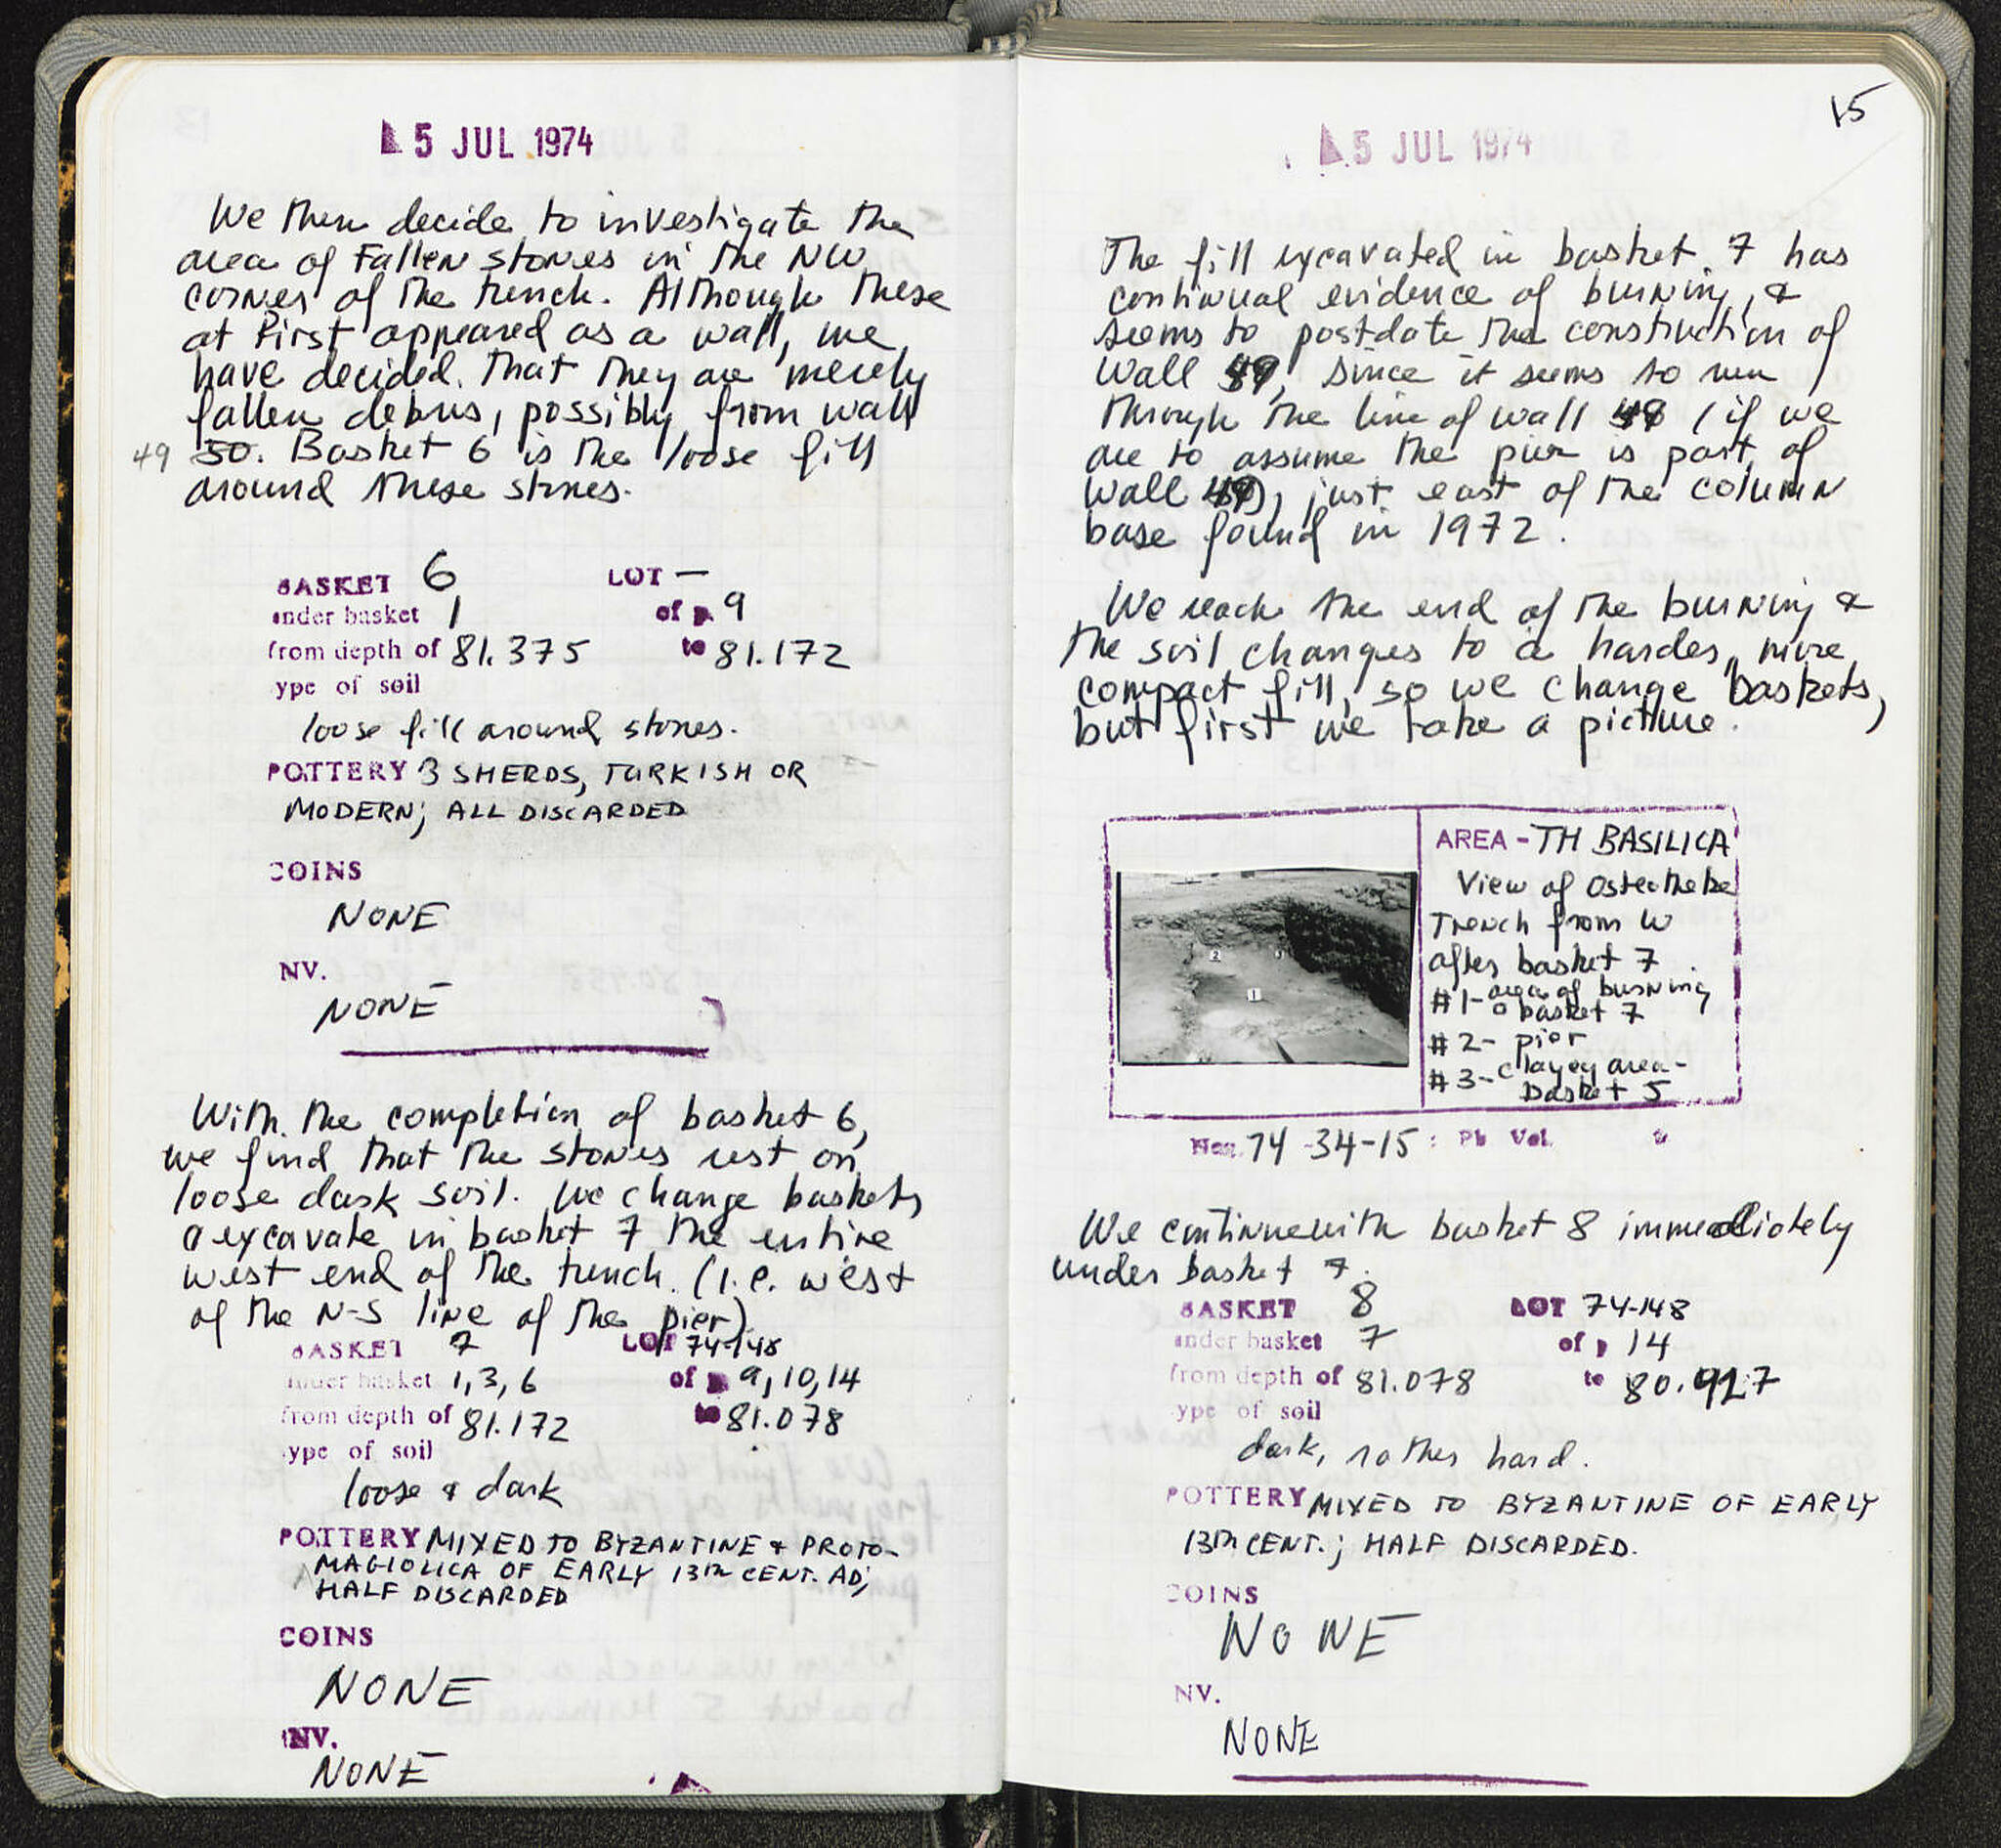 5 JUL 1974
We then decide to investigate the
area of fallen stones in the NW
corner of the trench. Although these
at first appeared as a wall, we
have decided that they are merely
fallen debris, possibly from wall
49 50. Basket 6 is the loose fill
around these stones.
BASKET 6 LOT —
under basket 1 of p. 9
from depth of 81.375 to 81.172
ype of soil
loose fill around stones.
POTTERY 3 SHERDS, TURKISH OR
MODERN; ALL DISCARDED
COINS
NONE
NV.
NONE
With the completion of basket 6,
we find that the stones rest on
loose dark soil. We change baskets
& excavate in basket 7 the entire
west end of the trench. (i.e. west
of the N-S line of the pier)
BASKET 7 LOT 74-148
under basket 1,3,6 of p. 9,10,14
from depth of 81.172 to 81.078
ype of soil
loose & dark
POTTERY MIXED TO BYZANTINE & PROTO-
MAGIOLICA OF EARLY 13TH CENT. AD;
HALF DISCARDED
COINS
NONE
INV.
NONE
15
5 JUL 1974
The fill excavated in basket 7 has
continual evidence of burning, &
seems to postdate the construction of
Wall 49, since it seems to run
through the line of wall 49 (if we
are to assume the pier is part of
wall 49), just east of the column
base found in 1972.
We reach the end of the burning &
the soil changes to a harder, more
compact fill, so we change baskets,
but first we take a picture.
AREA - TH BASILICA
View of Osteotheke
Trench from W
after basket 7.
#1- area of burning
basket 7
#2- pier
#3- clayey area-
basket 5
Neg. 74-34-15: Pb Vol.
We continue with basket 8 immediately
under basket 7.
BASKET 8 LOT 74-148
under basket 7 of p 14
from depth of 81.078 to 80.927
ype of soil
dark, rather hard.
POTTERY MIXED TO BYZANTINE OF EARLY
13TH CENT.; HALF DISCARDED.
COINS
NONE
NV.
NONE